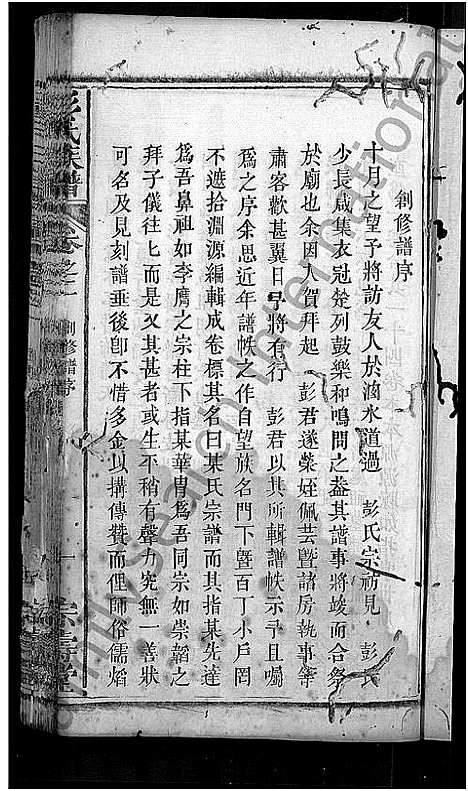 創修譜序
十月之望予將訪友人於滷水道過　彭氏宗祠見　彭氏
少長咸集衣冠楚列鼓樂和鳴問之葢其譜事將竣而合祭
於廟也余因入賀拜起　彭君遂榮姪佩芸曁諸房執事等
肅客歡甚翼日予將有行　彭君以其所輯譜帙示予且囑
爲之序余思近年譜帙之作自望族名門下曁百丁小戶罔
不遮拾淵源編輯成卷標其名曰某氏宗譜而其指某先達
爲吾鼻祖如李鷹之宗柱下指某華冑爲吾同宗如崇韜之
拜子儀往匕而是又其甚者或生不稍有聲力究無一善狀
可名及見刻譜垂後卽不惜多金以搆傳贊而俚師俗儒熖
彭氏族譜
卷之一
創修譜序
一